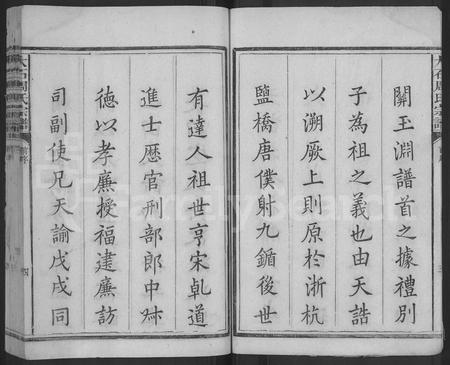 關玉淵譜首之據禮別
子為祖之義也由天誥
以溯厥上則原於浙杭
鹽橋唐僕射九鍎後世
有達人祖世亨宋乹道
進士歴官刑部郎中
德以孝廉授福建廉訪
司副使兄天諭戊戌同
大石周氏宗譜